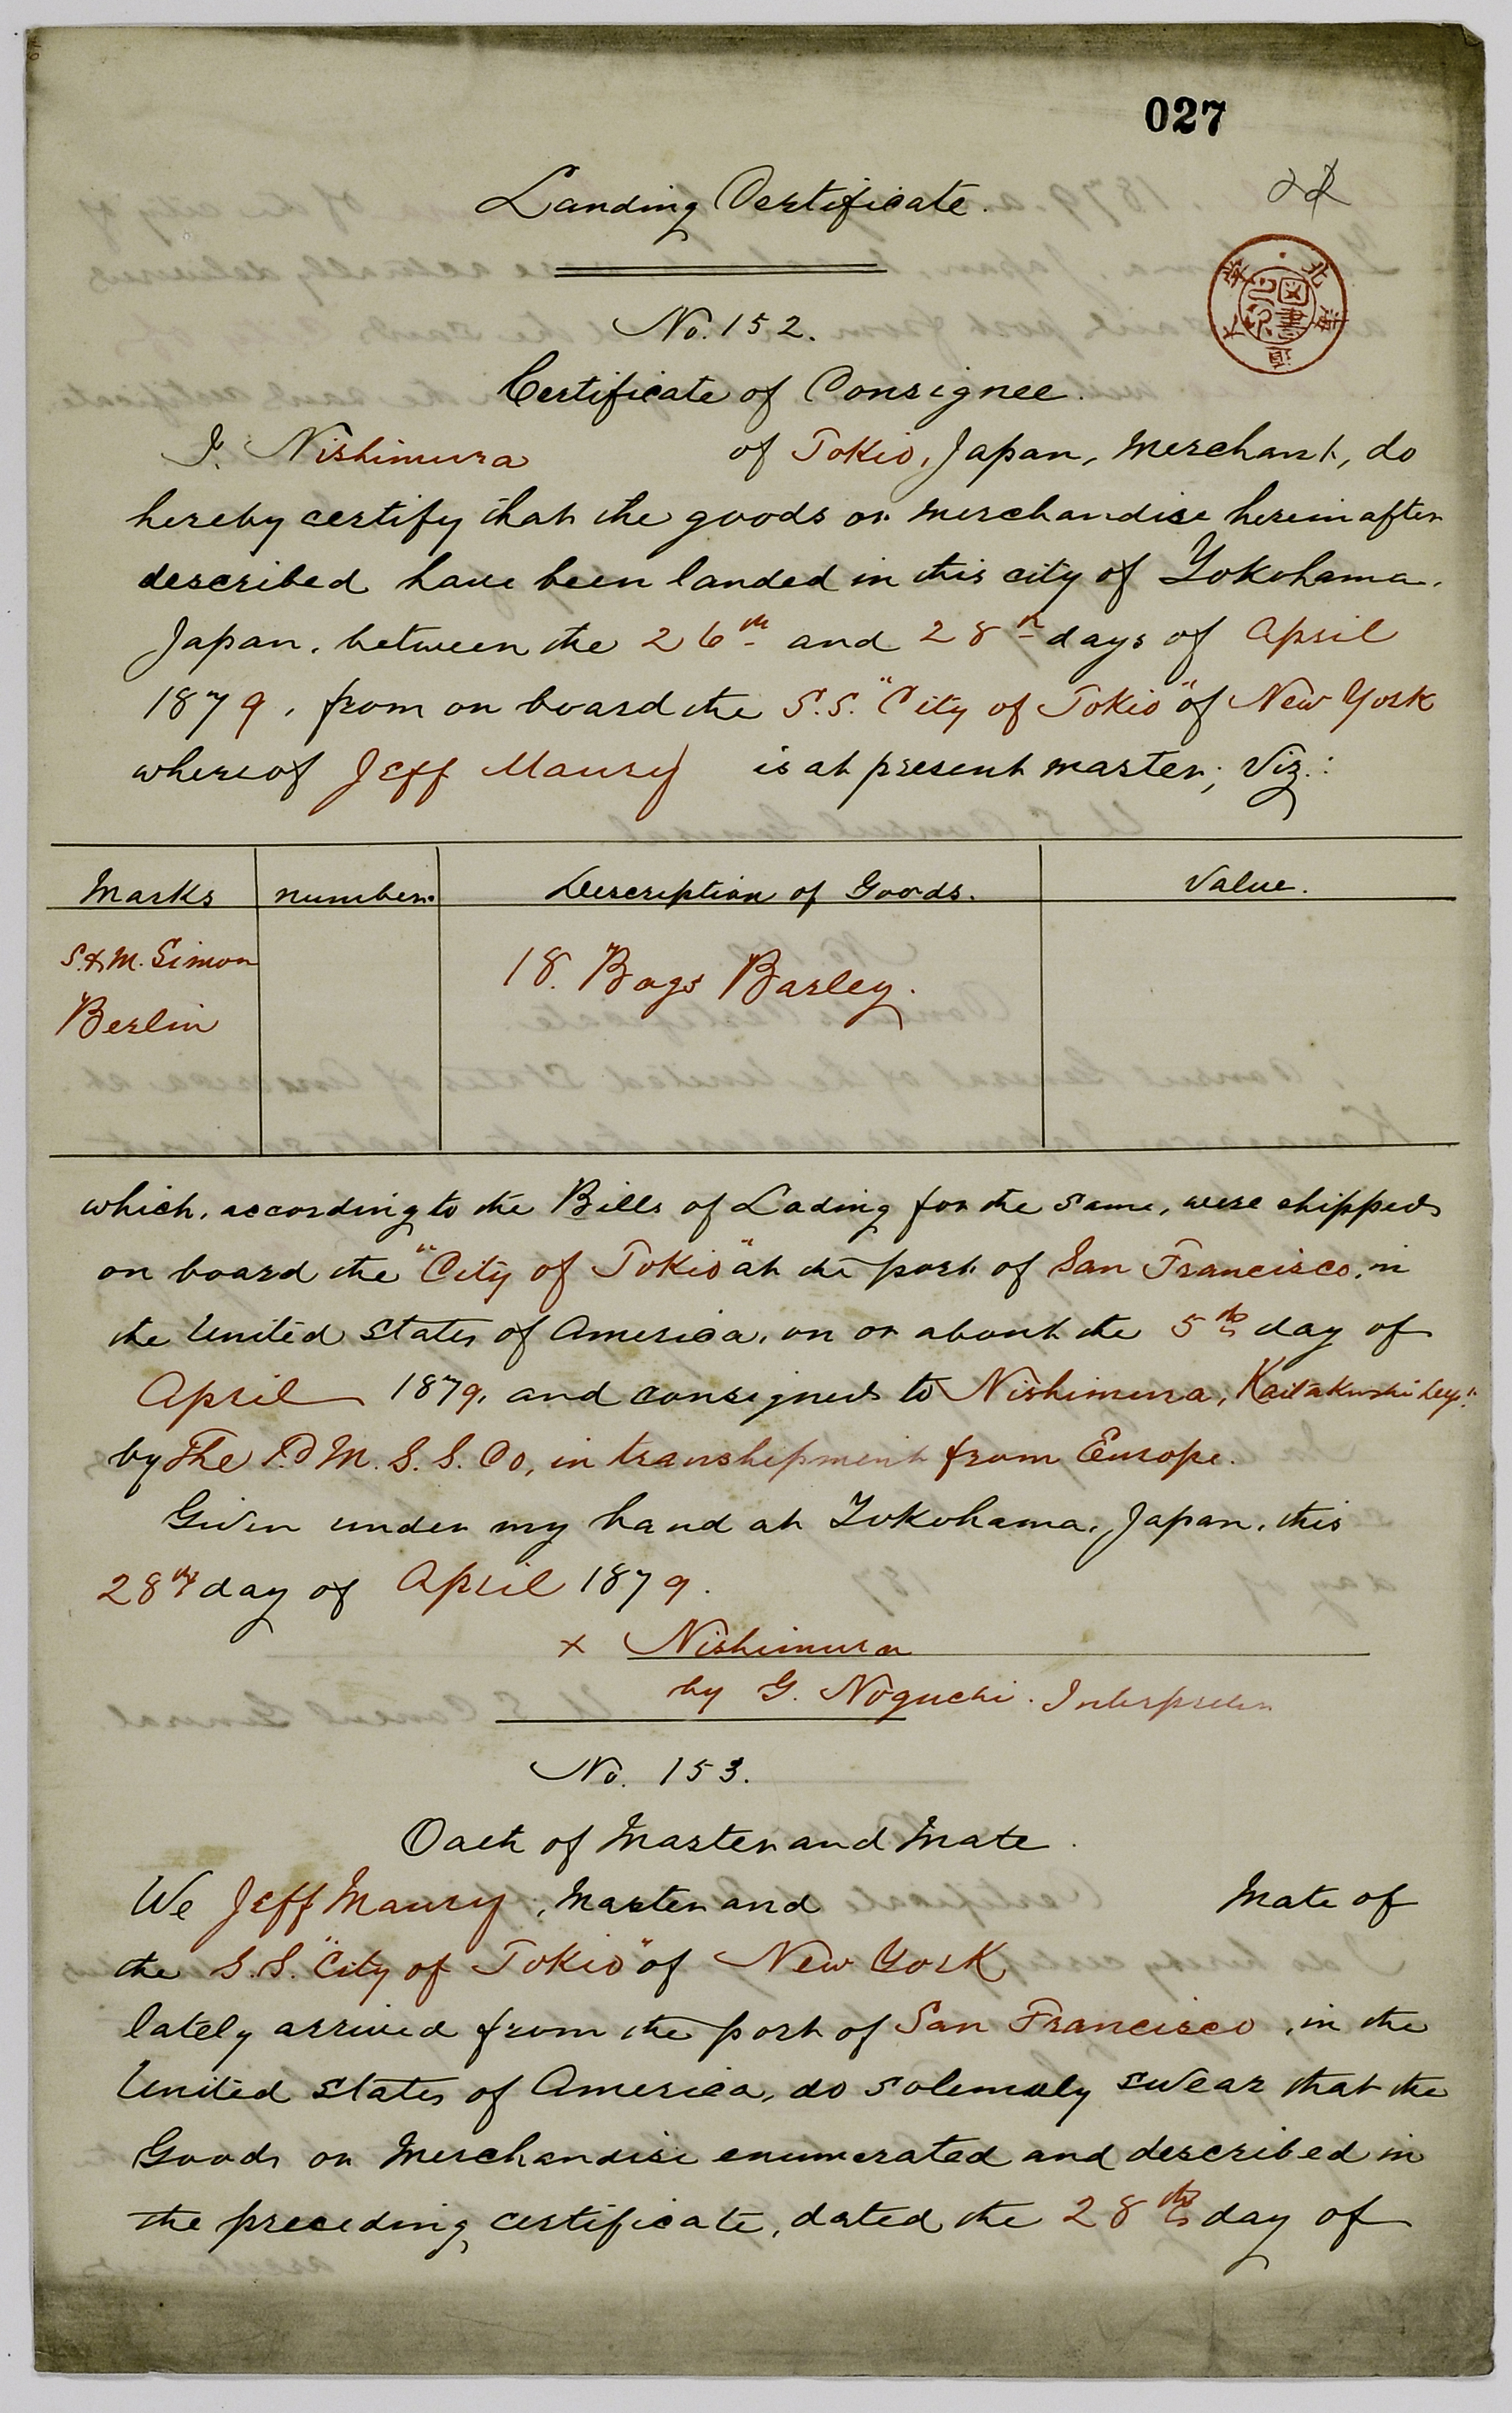 027
Landing Certificate.
No. 152.
Certificate of Consignee.
I. Nishimura of Tokio, Japan, Merchant, do
hereby certify that the goods or Merchandise hereinafter
described have been landed in this city of Yokohama,
Japan, between the 26th and 28th days of April
1879, from on board the S.S. "City of Tokio" of New York
whereof Jeff Maury is at present master; Viz.:
Marks number. Description of Goods. Value.
S. & M. Simon 18. Bags Barley.
Berlin
which, according to the Bills of Lading for the same, were shipped
on board the "City of Tokio" at the port of San Francisco, in
the United States of America, on or about the 5th day of
April 1879, and consigned to Nishimura, Kaitakushi Dept.
by The P. M. S. S. Co, in transhipment from Europe.
Given under my hand at Yokohama, Japan, this
28th day of April 1879.
x Nishimura
by G. Noguchi. Interpreter
No. 153.
Oath of Master and Mate.
We Jeff Maury, Master and Mate of
the S.S. "City of Tokio" of New York
lately arrived from the port of San Francisco, in the
United States of America, do solemnly swear that the
Goods or Merchandise enumerated and described in
the preceding certificate, dated the 28th day of